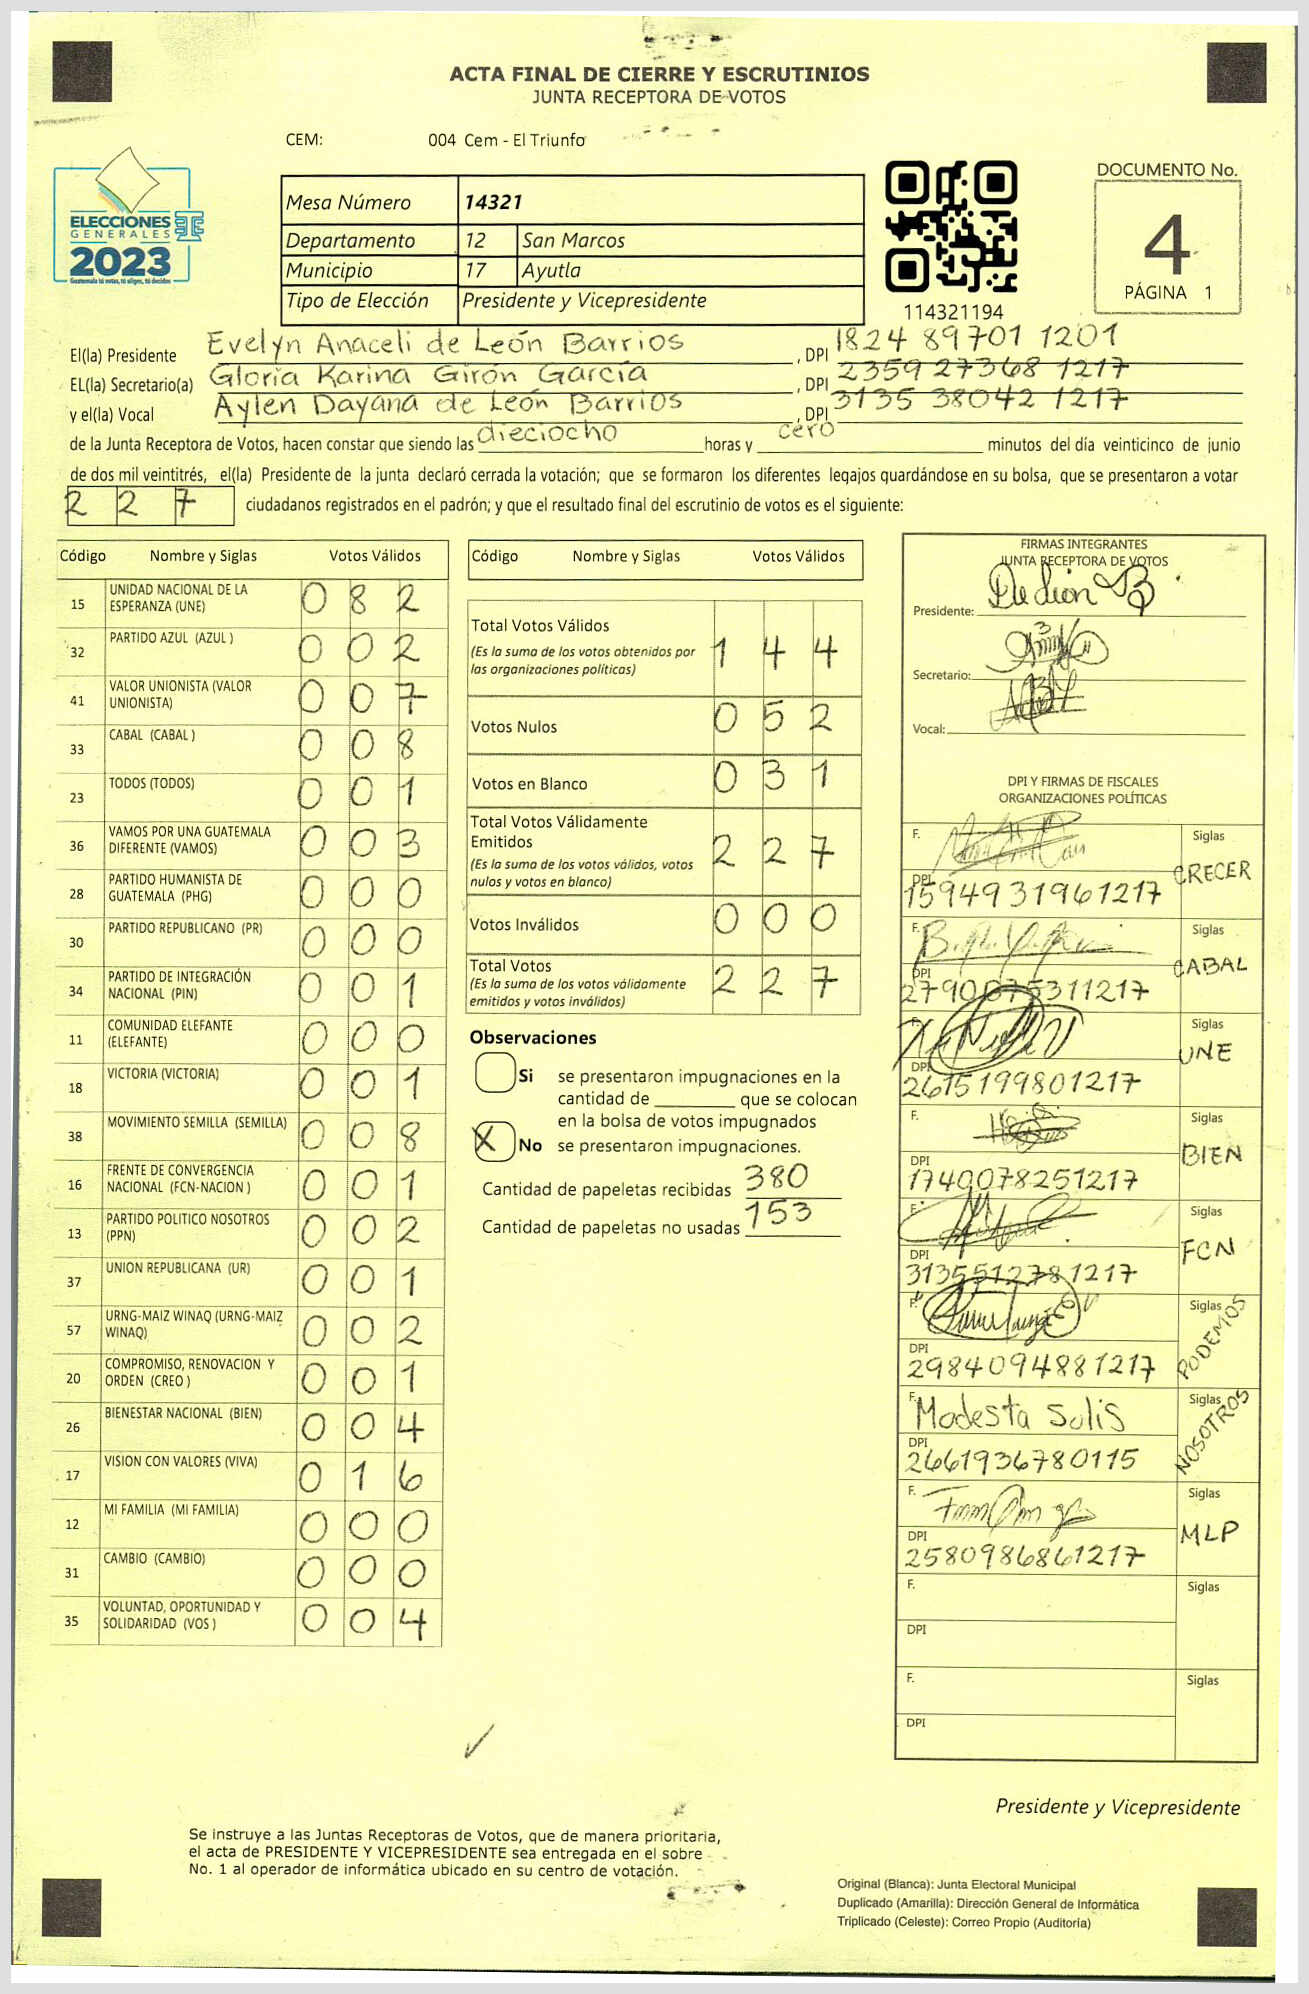 ACTA FINAL DE CIERRE Y ESCRUTINIOS
JUNTA RECEPTORA DE VOTOS
CEM: 004 Cem - El Triunfo
ELECCIONES
GENERALES
2023
Guatemala tú votas, tú eliges, tú decides
Mesa Número 14321
Departamento 12 San Marcos
Municipio 17 Ayutla
Tipo de Elección Presidente y Vicepresidente
114321194
DOCUMENTO No.
4
PÁGINA 1
El(la) Presidente Evelyn Anaceli de León Barrios , DPI 1824 89701 1201
EL(la) Secretario(a) Gloria Karina Girón García , DPI 2359 27368 1217
y el(la) Vocal Aylen Dayana de León Barrios , DPI 3135 38042 1217
de la Junta Receptora de Votos, hacen constar que siendo las dieciocho horas y cero minutos del día veinticinco de junio
de dos mil veintitrés, el(la) Presidente de la junta declaró cerrada la votación; que se formaron los diferentes legajos quardándose en su bolsa, que se presentaron a votar
227 ciudadanos registrados en el padrón; y que el resultado final del escrutinio de votos es el siguiente:
Código Nombre y Siglas Votos Válidos
15 UNIDAD NACIONAL DE LA ESPERANZA (UNE) 082
32 PARTIDO AZUL (AZUL ) 002
41 VALOR UNIONISTA (VALOR UNIONISTA) 007
33 CABAL (CABAL ) 008
23 TODOS (TODOS) 001
36 VAMOS POR UNA GUATEMALA DIFERENTE (VAMOS) 003
28 PARTIDO HUMANISTA DE GUATEMALA (PHG) 000
30 PARTIDO REPUBLICANO (PR) 000
34 PARTIDO DE INTEGRACIÓN NACIONAL (PIN) 001
11 COMUNIDAD ELEFANTE (ELEFANTE) 000
18 VICTORIA (VICTORIA) 001
38 MOVIMIENTO SEMILLA (SEMILLA) 008
16 FRENTE DE CONVERGENCIA NACIONAL (FCN-NACION ) 001
13 PARTIDO POLITICO NOSOTROS (PPN) 002
37 UNION REPUBLICANA (UR) 001
57 URNG-MAIZ WINAQ (URNG-MAIZ WINAQ) 002
20 COMPROMISO, RENOVACION Y ORDEN (CREO ) 001
26 BIENESTAR NACIONAL (BIEN) 004
17 VISION CON VALORES (VIVA) 016
12 MI FAMILIA (MI FAMILIA) 000
31 CAMBIO (CAMBIO) 000
35 VOLUNTAD, OPORTUNIDAD Y SOLIDARIDAD (VOS ) 004
Código Nombre y Siglas Votos Válidos
Total Votos Válidos 144
(Es la suma de los votos obtenidos por
las organizaciones políticas)
Votos Nulos 052
Votos en Blanco 031
Total Votos Válidamente
Emitidos 227
(Es la suma de los votos válidos, votos
nulos y votos en blanco)
Votos Inválidos 000
Total Votos 227
(Es la suma de los votos válidamente
emitidos y votos inválidos)
Observaciones
Si se presentaron impugnaciones en la
cantidad de ________ que se colocan
en la bolsa de votos impugnados
X No se presentaron impugnaciones.
Cantidad de papeletas recibidas 380
Cantidad de papeletas no usadas 153
FIRMAS INTEGRANTES
JUNTA RECEPTORA DE VOTOS
Presidente:
Secretario:
Vocal:
DPI Y FIRMAS DE FISCALES
ORGANIZACIONES POLÍTICAS
F. Siglas CRECER
DPI 1594931961217
F. Siglas CABAL
DPI 2790075311217
F. Siglas UNE
DPI 2615199801217
F. Siglas BIEN
DPI 1740078251217
F. Siglas FCN
DPI 3135512781217
F. Siglas PODEMOS
DPI 2984094881217
F. Modesta Solis Siglas NOSOTROS
DPI 2661936780115
F. Siglas MLP
DPI 2580986861217
F. Siglas
DPI
F. Siglas
DPI
Presidente y Vicepresidente
Se instruye a las Juntas Receptoras de Votos, que de manera prioritaria,
el acta de PRESIDENTE Y VICEPRESIDENTE sea entregada en el sobre
No. 1 al operador de informática ubicado en su centro de votación.
Original (Blanca): Junta Electoral Municipal
Duplicado (Amarilla): Dirección General de Informática
Triplicado (Celeste): Correo Propio (Auditoría)